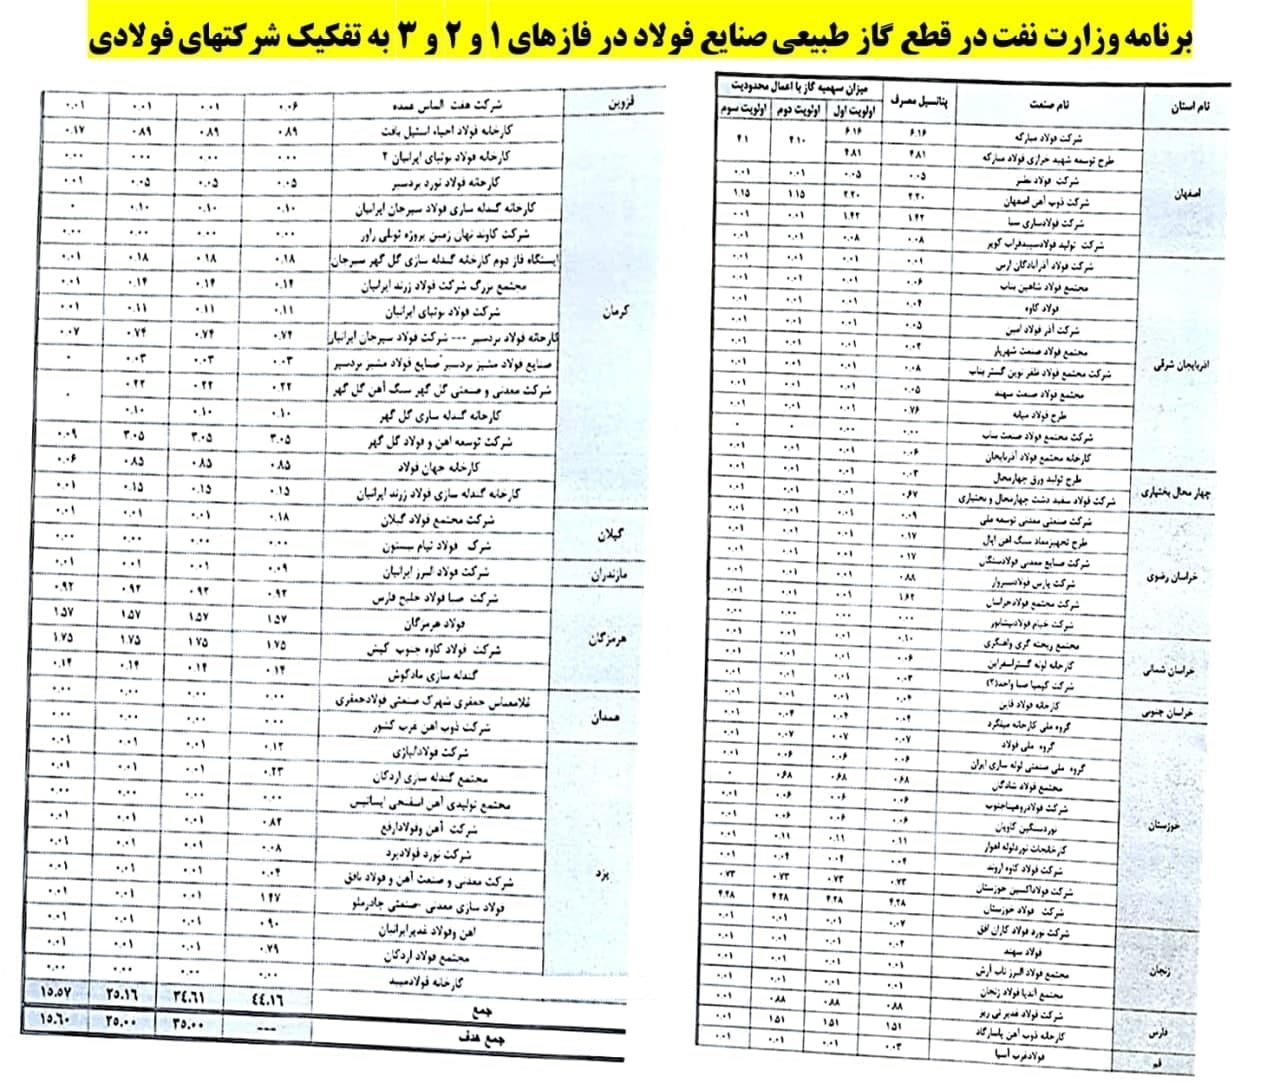 برنامه وزارت نفت در قطع گاز طبیعی صنایع فولاد در فازهای ۱ و ۲ و ۳ به تفکیک شرکتهای فولادی
نام استان نام صنعت پتانسیل مصرف میزان سهمیه گاز با اعمال محدودیت
اولویت اول اولویت دوم اولویت سوم
اصفهان
شرکت فولاد مبارکه ۶.۱۶ ۶.۱۶ ۴.۱۰ ۴۱
طرح توسعه شهید خرازی فولاد مبارکه ۴.۸۱ ۴.۸۱
شرکت فولاد نطنز ۰.۰۵ ۰.۰۵ ۰.۰۱ ۰.۰۱
شرکت ذوب آهن اصفهان ۲.۲۰ ۲.۲۰ ۱.۱۵ ۱.۱۵
شرکت فولادسازی سبا ۱.۴۲ ۱.۴۲ ۰.۰۱ ۰.۰۱
شرکت تولید فولادسپیدفراب کویر ۰.۰۸ ۰.۰۸ ۰.۰۱ ۰.۰۱
اذربایجان شرقی
شرکت فولاد آذرآبادگان ارس ۰.۰۱ ۰.۰۱ ۰.۰۱ ۰.۰۱
مجتمع فولاد شاهین بناب ۰.۰۶ ۰.۰۱ ۰.۰۱ ۰.۰۱
فولاد کاوه ۰.۰۴ ۰.۰۱ ۰.۰۱ ۰.۰۱
شرکت آذر فولاد امین ۰.۰۵ ۰.۰۱ ۰.۰۱ ۰.۰۱
مجتمع فولاد صنعت شهریار ۰.۰۲ ۰.۰۱ ۰.۰۱ ۰.۰۱
شرکت مجتمع فولاد ظفر نوین گستر بناب ۰.۰۸ ۰.۰۱ ۰.۰۱ ۰.۰۱
مجتمع فولاد صنعت سهند ۰.۰۵ ۰.۰۱ ۰.۰۱ ۰.۰۱
طرح فولاد میانه ۰.۷۶ ۰.۰۱ ۰.۰۱ ۰.۰۱
شرکت مجتمع فولاد صنعت بناب ۰.۰۰ ۰.۰۰ ۰ ۰
کارخانه مجتمع فولاد آذربایجان ۰.۰۶ ۰.۰۱ ۰.۰۱ ۰.۰۱
چهار محال بختیاری
طرح تولید ورق چهارمحال ۰.۰۲ ۰.۰۱ ۰.۰۱ ۰.۰۱
شرکت فولاد سفید دشت چهارمحال و بختیاری ۰.۶۷ ۰.۰۱ ۰.۰۱ ۰.۰۱
خراسان رضوی
شرکت صنعتی معدنی توسعه ملی ۰.۰۹ ۰.۰۱ ۰.۰۱ ۰.۰۱
طرح تجهیزمعاد سنگ اهن اپال ۰.۱۷ ۰.۰۱ ۰.۰۱ ۰.۰۱
شرکت صنایع معدنی فولادسنگان ۰.۱۷ ۰.۰۱ ۰.۰۱ ۰.۰۱
شرکت پارس فولادسبزوار ۰.۸۸ ۰.۰۱ ۰.۰۱ ۰.۰۱
شرکت مجتمع فولادخراسان ۱.۶۲ ۰.۰۱ ۰.۰۱ ۰.۰۱
شرکت خیام فولادنیشابور ۰.۰۰ ۰.۰۰ ۰.۰۰ ۰.۰۰
خراسان شمالی
مجتمع ریخته گری واهنگری ۰.۱۰ ۰.۰۱ ۰.۰۱ ۰.۰۱
کارخانه لوله گستراسفراین ۰.۰۶ ۰.۰۱ ۰.۰۱ ۰.۰۱
شرکت کیمیا صبا واحد(۲) ۰.۰۳ ۰.۰۱ ۰.۰۱ ۰.۰۱
خراسان جنوبی
کارخانه فولاد قاین ۰.۰۴ ۰.۰۱ ۰.۰۱ ۰.۰۱
خوزستان
گروه ملی کارخانه میلگرد ۰.۰۴ ۰.۰۴ ۰.۰۴ ۰.۰۱
گروه ملی فولاد ۰.۰۷ ۰.۰۷ ۰.۰۷ ۰.۰۱
گروه ملی صنعتی لوله سازی ایران ۰.۰۶ ۰.۰۶ ۰.۰۶ ۰.۰۱
مجتمع فولاد شادگان ۰.۶۸ ۰.۶۸ ۰.۶۸ ۰
شرکت فولادروهیناجنوب ۰.۰۶ ۰.۰۶ ۰.۰۶ ۰.۰۱
نوردسنگین کاویان ۰.۰۶ ۰.۰۶ ۰.۰۶ ۰.۰۱
کارخانجات نوردلوله اهواز ۰.۱۱ ۰.۱۱ ۰.۱۱ ۰.۰۱
شرکت فولاد کاوه اروند ۰.۰۴ ۰.۰۴ ۰.۰۴ ۰.۰۱
شرکت فولاداکسین خوزستان ۰.۷۳ ۰.۷۳ ۰.۷۳ ۰.۷۳
شرکت فولاد خوزستان ۴.۲۸ ۴.۲۸ ۴.۲۸ ۴.۲۸
زنجان
شرکت نورد فولاد کاران افق ۰.۰۷ ۰.۰۱ ۰.۰۱ ۰.۰۱
فولاد سهند ۰.۰۲ ۰.۰۱ ۰.۰۱ ۰.۰۱
مجتمع فولاد البرز تاب آرش ۰.۰۱ ۰.۰۱ ۰.۰۱ ۰.۰۱
مجتمع آندیا فولاد زنجان ۰.۰۱ ۰.۰۱ ۰.۰۱ ۰.۰۱
فارس
شرکت فولاد غدیر نی ریز ۰.۸۸ ۰.۸۸ ۰.۸۸ ۰.۰۱
کارخانه ذوب آهن پاسارگاد ۱.۵۱ ۱.۵۱ ۱.۵۱ ۰.۰۱
قم
فولادغرب آسیا ۰.۰۳ ۰.۰۱ ۰.۰۱ ۰.۰۱
قزوین
شرکت هفت الماس عمده ۰.۰۶ ۰.۰۱ ۰.۰۱ ۰.۰۱
کرمان
کارخانه فولاد احیاء استیل بافت ۰.۸۹ ۰.۸۹ ۰.۸۹ ۰.۱۷
کارخانه فولاد بوتیای ایرانیان ۲ ۰.۰۰ ۰.۰۰ ۰.۰۰ ۰.۰۰
کارخانه فولاد نورد بردسیر ۰.۰۵ ۰.۰۵ ۰.۰۵ ۰.۰۱
کارخانه گندله سازی فولاد سیرجان ایرانیان ۰.۱۰ ۰.۱۰ ۰.۱۰ ۰
شرکت کاوند نهان زمین پروژه تونلی راور ۰.۰۰ ۰.۰۰ ۰.۰۰ ۰.۰۰
ایستگاه فاز دوم کارخانه گندله سازی گل گهر سیرجان ۰.۱۸ ۰.۱۸ ۰.۱۸ ۰.۰۱
مجتمع بزرگ شرکت فولاد زرند ایرانیان ۰.۱۴ ۰.۱۴ ۰.۱۴ ۰.۰۱
شرکت فولاد بوتیای ایرانیان ۰.۱۱ ۰.۱۱ ۰.۱۱ ۰.۰۱
کارخانه فولاد بردسیر --- شرکت فولاد سیرجان ایرانیان ۰.۷۴ ۰.۷۴ ۰.۷۴ ۰.۰۷
صنایع فولاد مشیز بردسیر صنایع فولاد مشیز بردسیر ۰.۰۳ ۰.۰۳ ۰.۰۳ ۰
شرکت معدنی و صنعتی گل گهر سنگ آهن گل گهر ۰.۲۲ ۰.۲۲ ۰.۲۲ ۰
کارخانه گندله سازی گل گهر ۰.۱۰ ۰.۱۰ ۰.۱۰
شرکت توسعه اهن و فولاد گل گهر ۳.۰۵ ۳.۰۵ ۳.۰۵ ۰.۰۹
کارخانه جهان فولاد ۰.۸۵ ۰.۸۵ ۰.۸۵ ۰.۰۶
کارخانه گندله سازی فولاد زرند ایرانیان ۰.۱۵ ۰.۱۵ ۰.۱۵ ۰.۰۱
گیلان
شرکت مجتمع فولاد گیلان ۰.۱۸ ۰.۰۱ ۰.۰۱ ۰.۰۱
شرک فولاد تیام بیستون ۰.۰۰ ۰.۰۰ ۰.۰۰ ۰.۰۰
مازندران
شرکت فولاد البرز ایرانیان ۰.۰۹ ۰.۰۱ ۰.۰۱ ۰.۰۱
هرمزگان
شرکت صبا فولاد خلیج فارس ۰.۹۲ ۰.۹۲ ۰.۹۲ ۰.۹۲
فولاد هرمزگان ۱.۵۷ ۱.۵۷ ۱.۵۷ ۱.۵۷
شرکت فولاد کاوه جنوب کیش ۱.۷۵ ۱.۷۵ ۱.۷۵ ۱.۷۵
گندله سازی مادکوش ۰.۱۴ ۰.۱۴ ۰.۱۴ ۰.۱۴
همدان
غلامعباس جعفری شهرک صنعتی فولادجعفری ۰.۰۰ ۰.۰۰ ۰.۰۰ ۰.۰۰
شرکت ذوب اهن غرب کشور ۰.۰۰ ۰.۰۰ ۰.۰۰ ۰.۰۰
یزد
شرکت فولادالیاژی ۰.۱۲ ۰.۰۱ ۰.۰۱ ۰.۰۱
مجتمع گندله سازی اردکان ۰.۲۳ ۰.۰۱ ۰.۰۱ ۰.۰۱
مجتمع تولیدی آهن اسفنجی ایساتیس ۰.۰۰ ۰.۰۰ ۰.۰۰ ۰.۰۰
شرکت آهن وفولادارفع ۰.۸۲ ۰.۰۱ ۰.۰۱ ۰.۰۱
شرکت نورد فولادیزد ۰.۰۸ ۰.۰۱ ۰.۰۱ ۰.۰۱
شرکت معدنی و صنعت آهن و فولاد بافق ۰.۰۴ ۰.۰۱ ۰.۰۱ ۰.۰۱
فولاد سازی معدنی -صنعتی چادرملو ۱.۴۷ ۰.۰۱ ۰.۰۱ ۰.۰۱
اهن وفولاد غدیرایرانیان ۰.۹۰ ۰.۰۱ ۰.۰۱ ۰.۰۱
مجتمع فولاد اردکان ۰.۷۹ ۰.۰۱ ۰.۰۱ ۰.۰۱
کارخانه فولادمیبد ۰.۰۰ ۰.۰۰ ۰.۰۰ ۰.۰۰
جمع ۴۴.۱۶ ۳۴.۶۱ ۲۵.۱۶ ۱۵.۵۷
جمع هدف --- ۳۵.۰۰ ۲۵.۰۰ ۱۵.۶۰